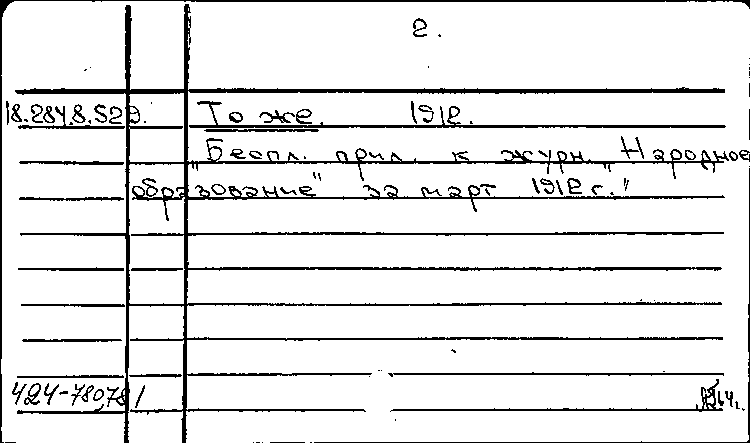 2.
18.284.8.529. То же. 1912.
„Беспл. прил. к журн. „Народное
образование" за март 1912 г."
424-78078 1